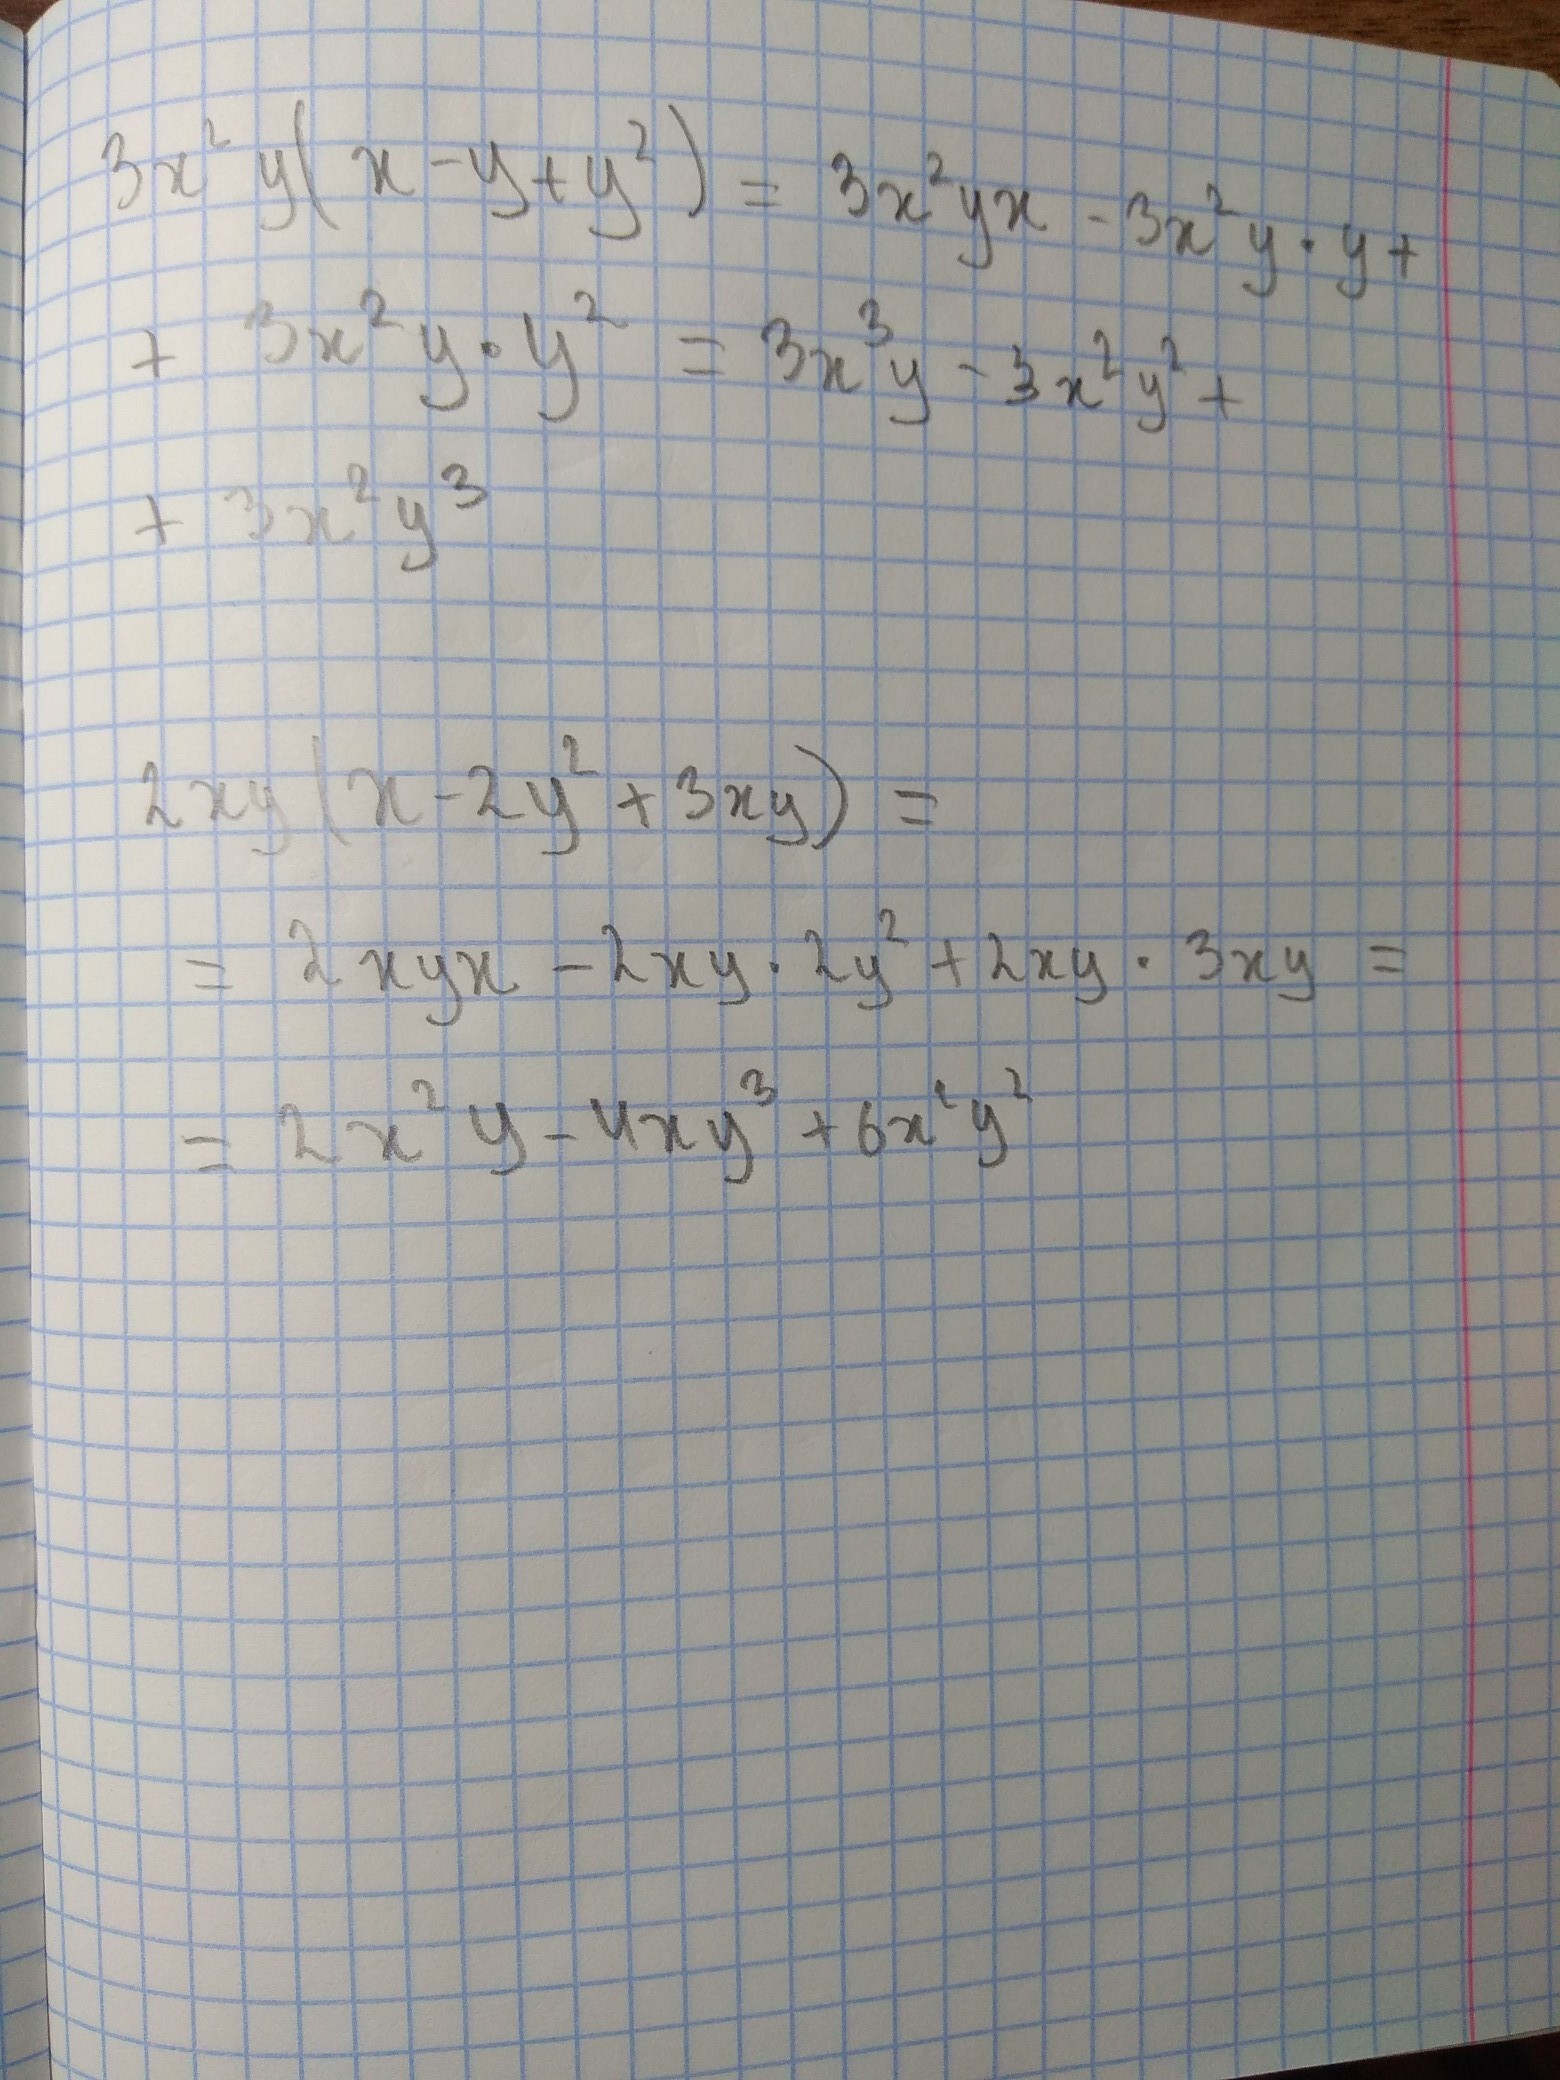 3x² y( x - y + y² ) = 3x²yx - 3x²y · y +
+ 3x²y · y² = 3x³y - 3x²y² +
+ 3x²y³
2xy ( x - 2y² + 3xy ) =
= 2xyx - 2xy · 2y² + 2xy · 3xy =
= 2x²y - 4xy³ + 6x²y²